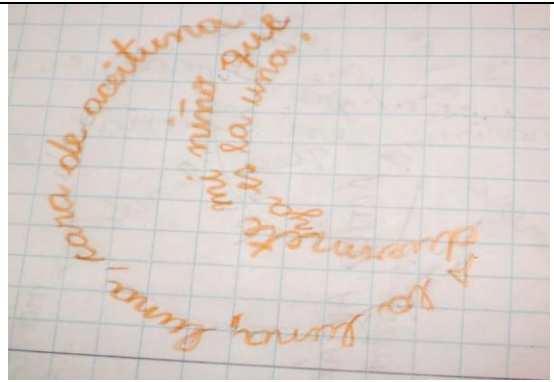 A la luna, luna, cara de aceituna
duermete mi niño que
ya es la una.